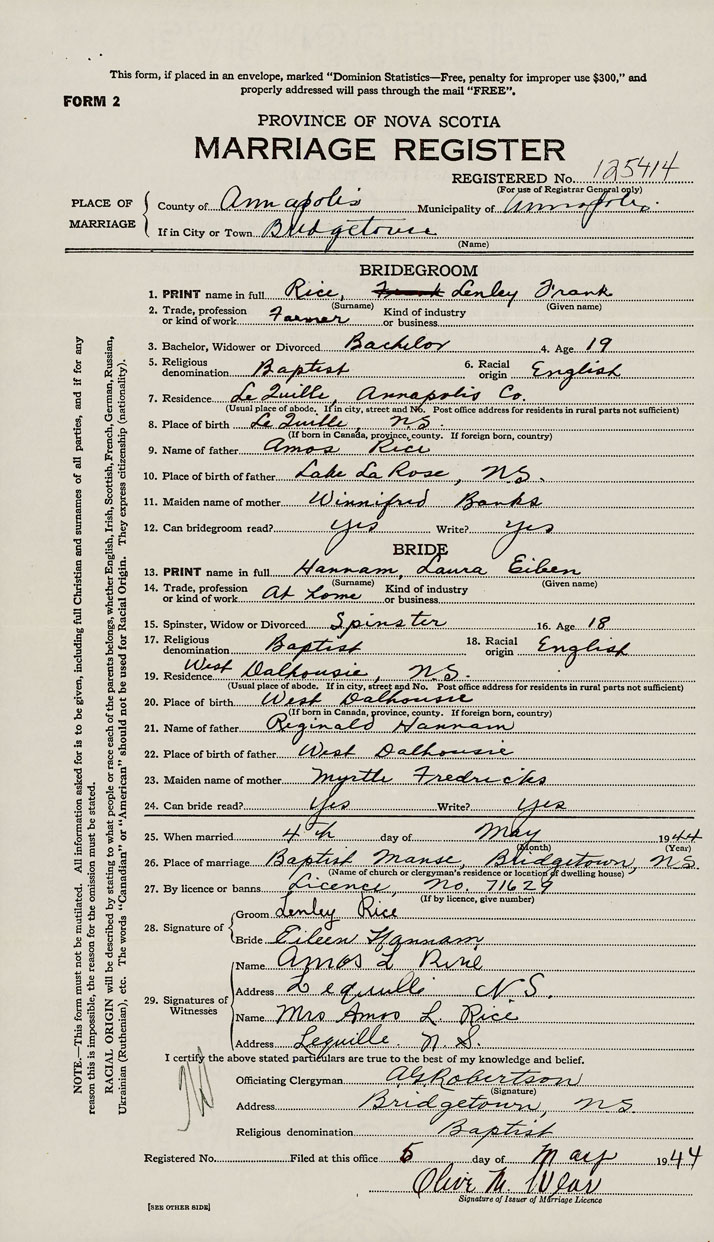 This form, if placed in an envelope, marked "Dominion Statistics—Free, penalty for improper use $300," and
properly addressed will pass through the mail "FREE".
FORM 2
PROVINCE OF NOVA SCOTIA
MARRIAGE REGISTER
REGISTERED No. 125414
(For use of Registrar General only)
PLACE OF MARRIAGE
County of Annapolis Municipality of Annapolis
If in City or Town Bridgetown
(Name)
BRIDEGROOM
1. PRINT name in full Rice, Frank Lenley Frank
(Surname) (Given name)
2. Trade, profession or kind of work Farmer Kind of industry or business
3. Bachelor, Widower or Divorced Bachelor 4. Age 19
5. Religious denomination Baptist 6. Racial origin English
7. Residence Le Quille, Annapolis Co.
(Usual place of abode. If in city, street and No. Post office address for residents in rural parts not sufficient)
8. Place of birth Le Quille, N.S.
(If born in Canada, province, county. If foreign born, country)
9. Name of father Amos Rice
10. Place of birth of father Lake La Rose, N.S.
11. Maiden name of mother Winnifred Banks
12. Can bridegroom read? yes Write? yes
BRIDE
13. PRINT name in full Hannam, Laura Eileen
(Surname) (Given name)
14. Trade, profession or kind of work At home Kind of industry or business
15. Spinster, Widow or Divorced Spinster 16. Age 18
17. Religious denomination Baptist 18. Racial origin English
19. Residence West Dalhousie, N.S.
(Usual place of abode. If in city, street and No. Post office address for residents in rural parts not sufficient)
20. Place of birth West Dalhousie
(If born in Canada, province, county. If foreign born, country)
21. Name of father Reginald Hannam
22. Place of birth of father West Dalhousie
23. Maiden name of mother Myrtle Fredricks
24. Can bride read? Yes Write? yes
25. When married 4th day of May 1944
(Month) (Year)
26. Place of marriage Baptist Manse, Bridgetown, N.S.
(Name of church or clergyman's residence or location of dwelling house)
27. By licence or banns Licence, No. 71629
(If by licence, give number)
28. Signature of
Groom Lenley Rice
Bride Eileen Hannam
29. Signatures of Witnesses
Name Amos L Rice
Address Lequille N.S.
Name Mrs Amos L Rice
Address Lequille N.S.
I certify the above stated particulars are true to the best of my knowledge and belief.
Officiating Clergyman A G Robertson
(Signature)
Address Bridgetown, N.S.
Religious denomination Baptist
Registered No. Filed at this office 5 day of May 1944
Olive M. Wear
Signature of Issuer of Marriage Licence
[SEE OTHER SIDE]
NOTE.—This form must not be mutilated. All information asked for is to be given, including full Christian and surnames of all parties, and if for any
reason this is impossible, the reason for the omission must be stated.
RACIAL ORIGIN will be described by stating to what people or race each of the parents belongs, whether English, Irish, Scottish, French, German, Russian,
Ukrainian (Ruthenian), etc. The words "Canadian" or "American" should not be used for Racial Origin. They express citizenship (nationality).